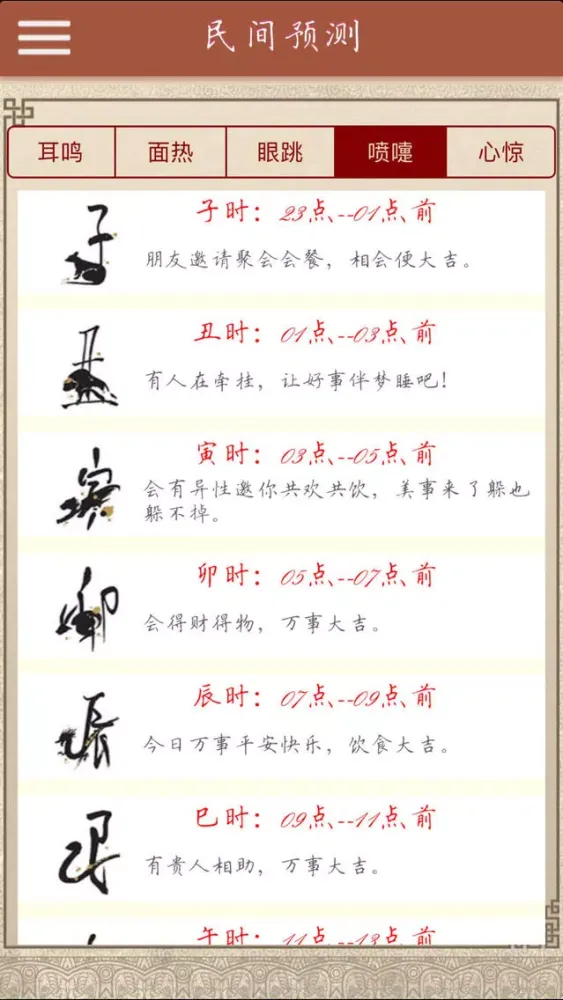 民间预测
耳鸣 面热 眼跳 喷嚏 心惊
子时：23点--01点前
朋友邀请聚会会餐，相会便大吉。
丑时：01点--03点前
有人在牵挂，让好事伴梦睡吧！
寅时：03点--05点前
会有异性邀你共欢共饮，美事来了躲也
躲不掉。
卯时：05点--07点前
会得财得物，万事大吉。
辰时：07点--09点前
今日万事平安快乐，饮食大吉。
巳时：09点--11点前
有贵人相助，万事大吉。
午时：11点--13点前